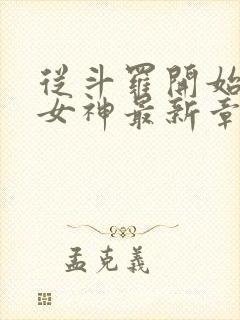 從斗羅開始
女神最新章
孟克義